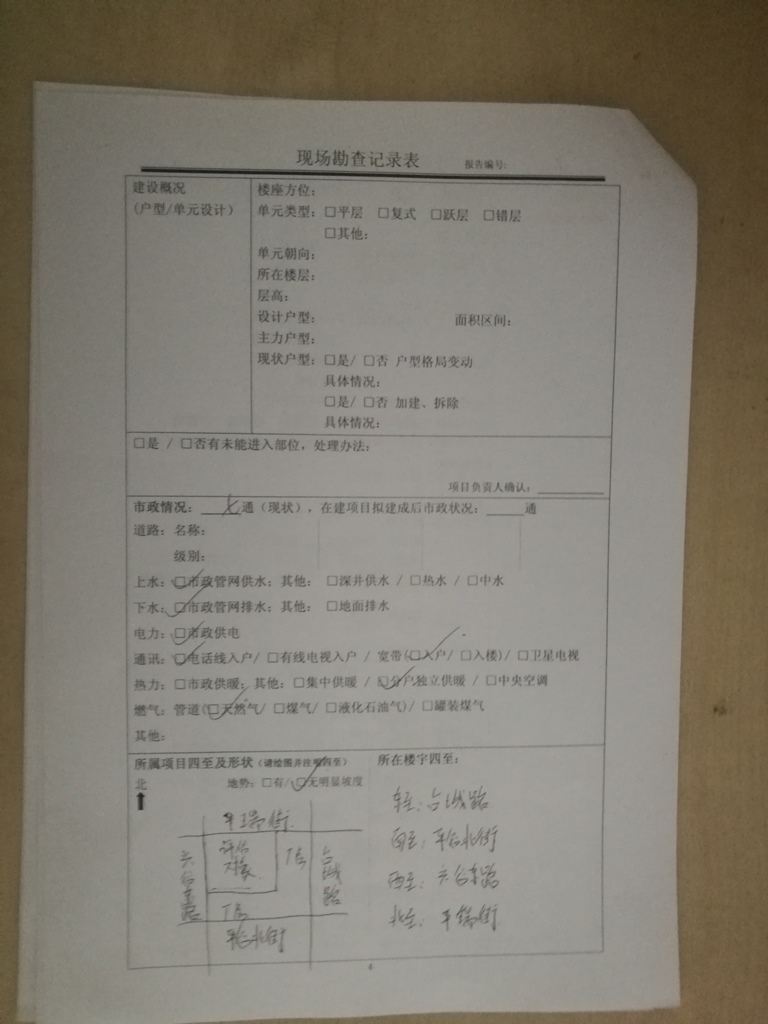 现场勘查记录表 报告编号:
建设概况
(户型/单元设计)
楼座方位:
单元类型: □平层 □复式 □跃层 □错层
□其他:
单元朝向:
所在楼层:
层高:
设计户型: 面积区间:
主力户型:
现状户型: □是/ □否 户型格局变动
具体情况:
□是/ □否 加建、拆除
具体情况:
□是 / □否有未能进入部位, 处理办法:
项目负责人确认:
市政情况: 通(现状), 在建项目拟建成后市政状况: 通
道路: 名称:
级别:
上水: □市政管网供水; 其他: □深井供水 / □热水 / □中水
下水: □市政管网排水; 其他: □地面排水
电力: □市政供电
通讯: □电话线入户/ □有线电视入户 / 宽带(□入户/ □入楼)/ □卫星电视
热力: □市政供暖; 其他: □集中供暖 / □分户独立供暖 / □中央空调
燃气: 管道(□天然气/ □煤气/ □液化石油气)/ □罐装煤气
其他:
所属项目四至及形状(请绘图并注明四至)
北 地势: □有/ □无明显坡度
平瑞街
台城路
平台北街
所在楼宇四至:
台城路
平台北街
西至: 六台东路
北至: 平瑞街
6